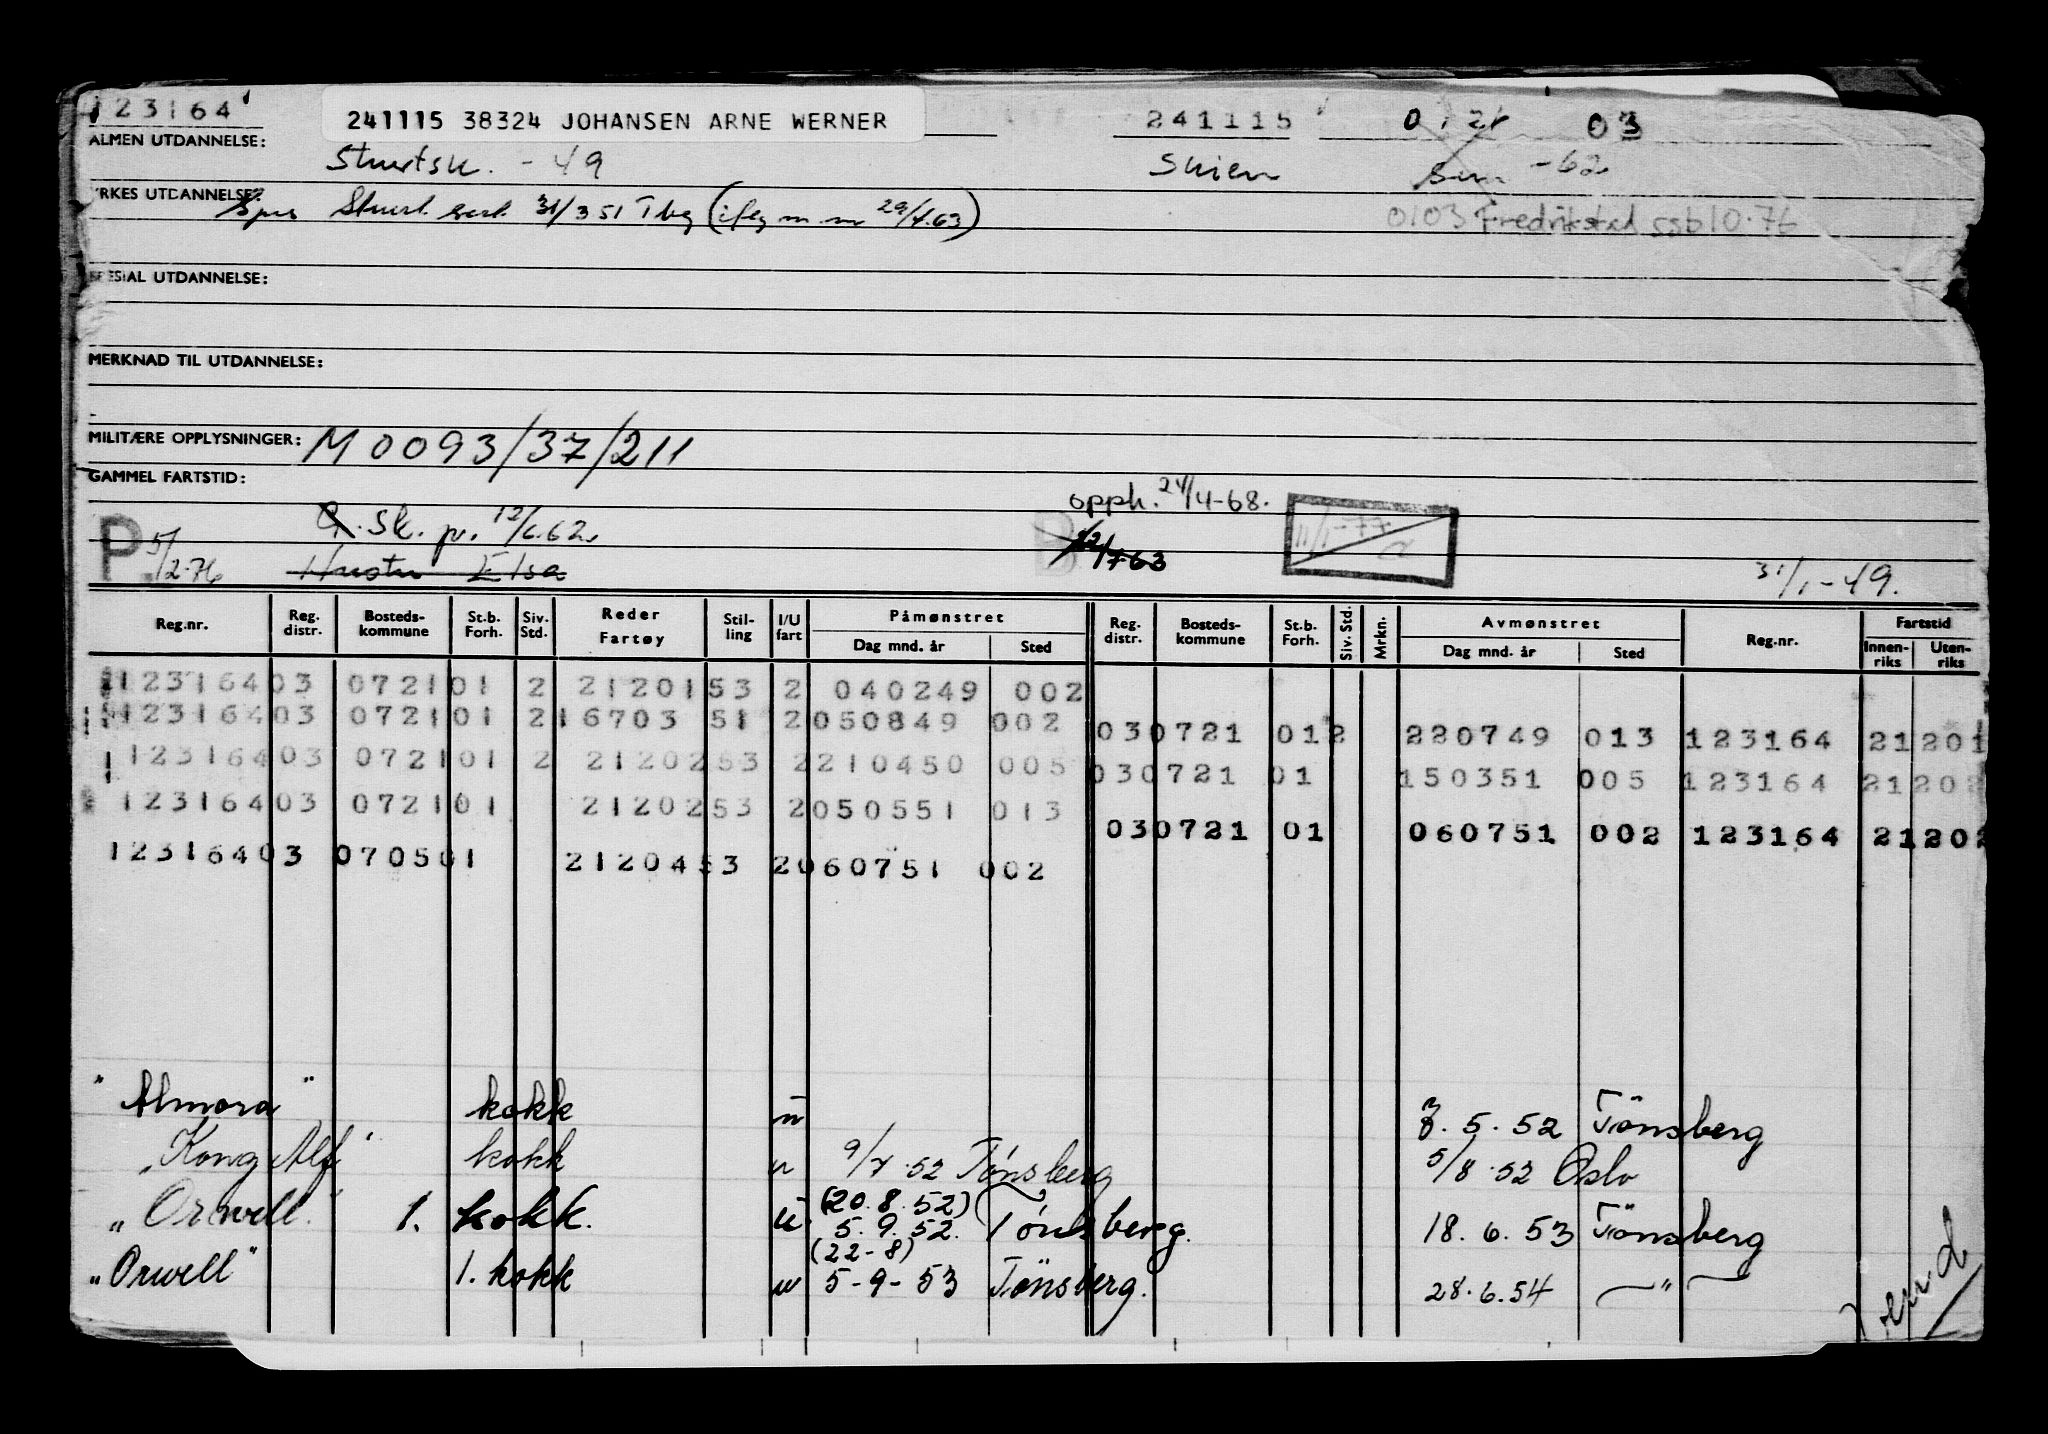 123164
241115 38324 JOHANSEN ARNE WERNER
241115
03
ALMEN UTDANNELSE:
Stuertsk. - 49
Skien
-62
YRKES UTDANNELSE:
Stuert. sert. 31/3 51 Tbg (
29/4.63)
0103 Fredrikstad ssb 10.76
SPESIAL UTDANNELSE:
MERKNAD TIL UTDANNELSE:
MILITÆRE OPPLYSNINGER: M 0093/37/211
GAMMEL FARTSTID:
opph. 24/4-68.
11/1-77
Sk. pr. 12/6.62.
P 5/2.76
Hustru Elsa
B 22/7 63
31/1-49.
Reg.nr. Reg. distr. Bosteds-kommune St.b. Forh. Siv. Std. Reder Fartøy Stil-ling I/U fart Påmønstret Dag mnd. år Sted Reg. distr. Bosteds-kommune St.b. Forh. Siv. Std. Mrkn. Avmønstret Dag mnd. år Sted Reg.nr. Fartstid Innen-riks Uten-riks
123164 03 0721 01 2 21201 53 2 040249 002
123164 03 0721 01 2 16703 51 2 050849 002 03 0721 01 2 220749 013 123164 21201
123164 03 0721 01 2 21202 53 2 210450 005 03 0721 01 150351 005 123164 21202
123164 03 0721 01 21202 53 2 050551 013
03 0721 01 060751 002 123164 21202
123164 03 0705 01 21204 53 2 060751 002
"Almora" kokk u 7.5.52 Tönsberg
"Kong Alf" kokk u 9/7.52 Tönsberg 5/8.52 Oslo
"Orwell." 1. kokk. u (20.8.52) 5.9.52. Tönsberg. 18.6.53 Tönsberg
"Orwell" 1. kokk u (22-8) 5-9-53 Tönsberg. 28.6.54 —"—